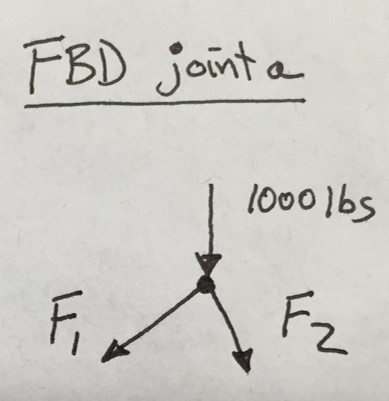 FBD joint a
1000 lbs
F1
F2